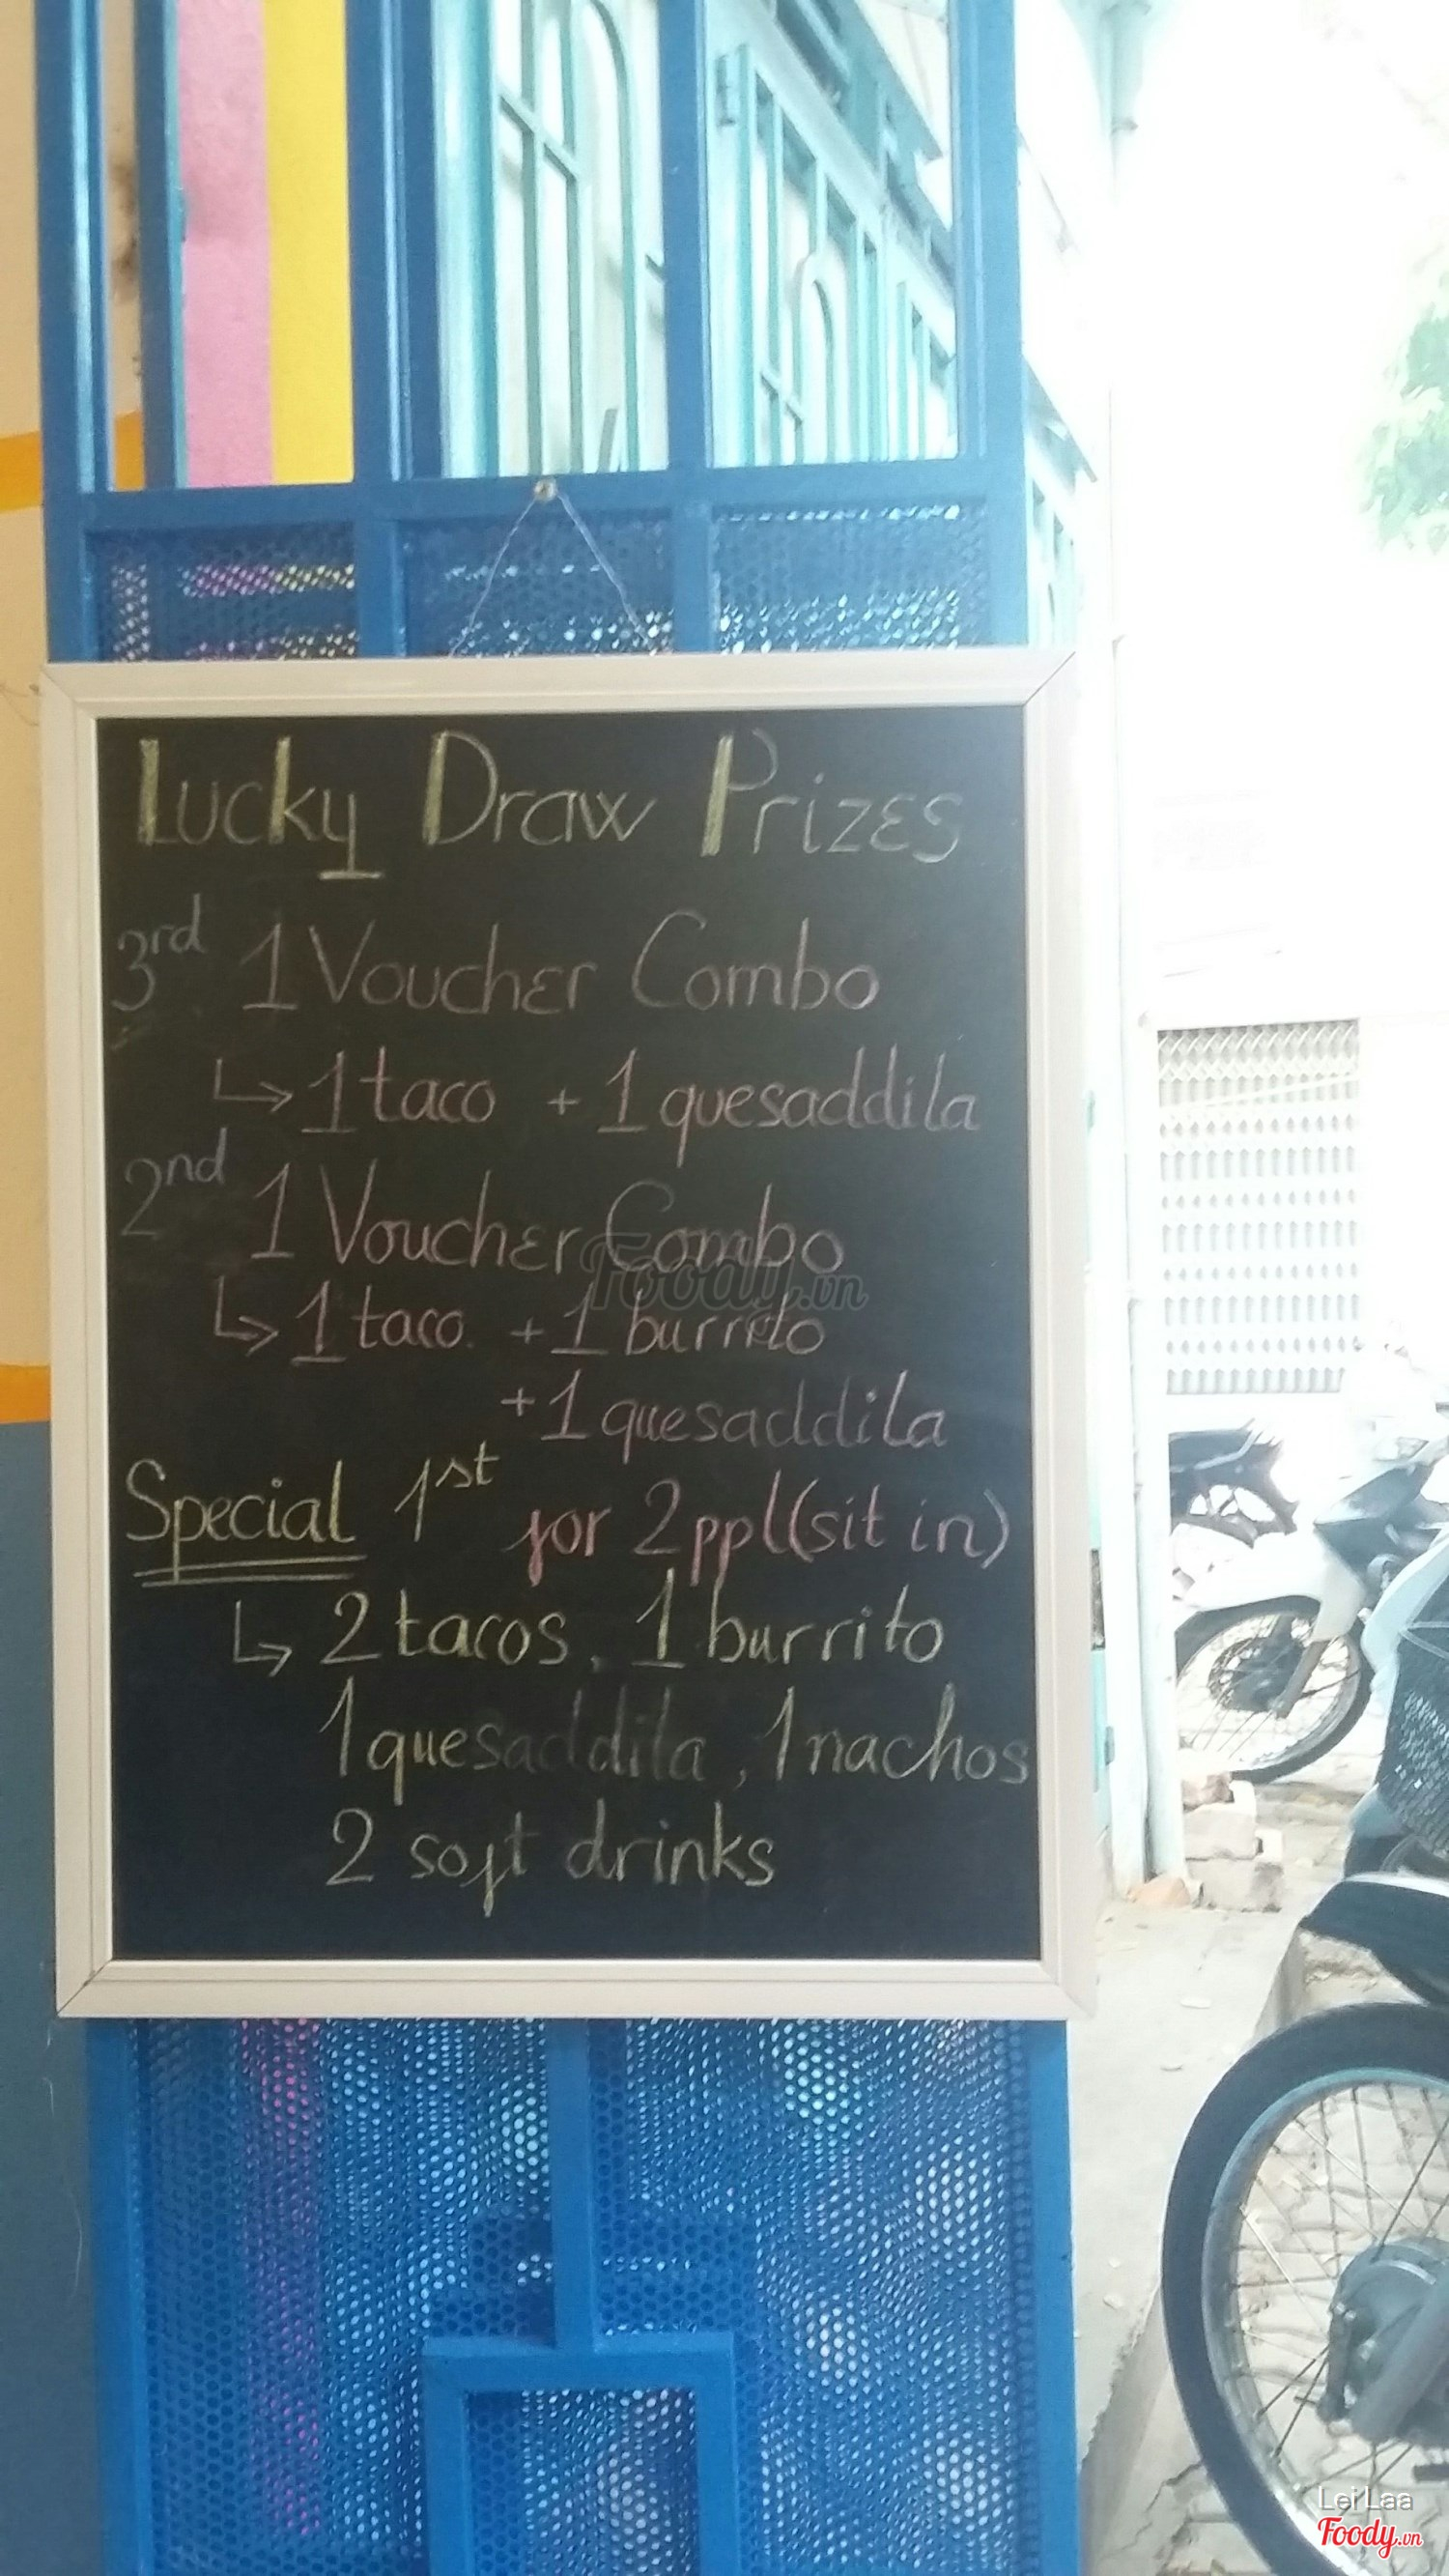 Lucky Draw Prizes
3rd 1 Voucher Combo
↳ 1 taco + 1 quesaddila
2nd 1 Voucher Combo
↳ 1 taco + 1 burrito
+ 1 quesaddila
Special 1st for 2 ppl (sit in)
↳ 2 tacos, 1 burrito
1 quesaddila, 1 nachos
2 soft drinks
Foody.vn
Lei Laa
Foody.vn